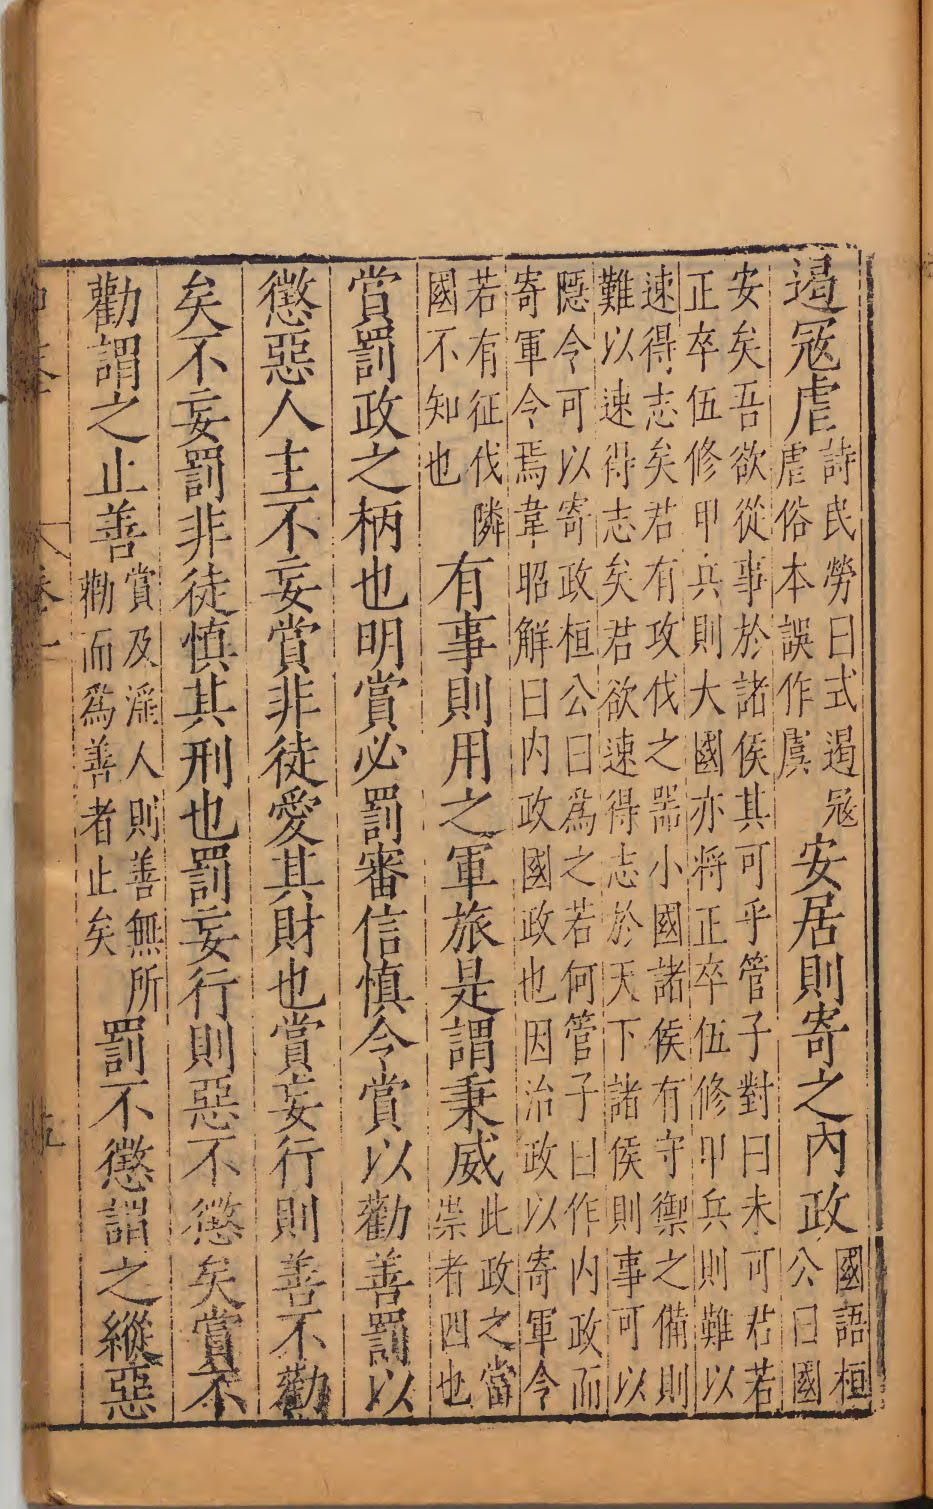 遏冦虐詩民勞曰式遏冦虐俗本誤作虞安居則寄之內政國語桓公曰國
安矣吾欲從事於諸侯其可乎管子對曰未可君若
正卒伍修甲兵則大國亦將正卒伍修甲兵則難以
速得志矣君有攻伐之器小國諸侯有守禦之備則
難以速得志矣君欲速得志於天下諸侯則事可以
隱令可以寄政桓公曰爲之若何管子曰作內政而
寄軍令焉韋昭解曰內政國政也因治政以寄軍令
若有征伐隣國不知也有事則用之軍旅是謂秉威此政之當崇者四也
賞罰政之柄也明賞必罰審信慎令賞以勸善罰以
懲惡人主不妄賞非徒愛其財也賞妄行則善不勸
矣不妄罰非徒慎其刑也罰妄行則惡不懲矣賞不
勸謂之止善賞及淫人則善無所勸而爲善者止矣罰不懲謂之縱惡
卷一